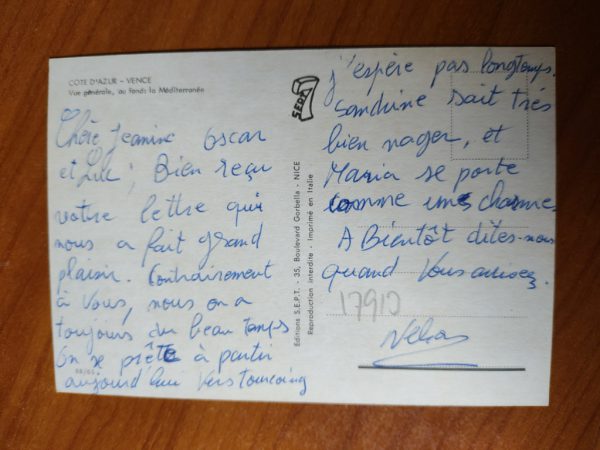 COTE D'AZUR - VENCE
Vue générale, au fonds la Méditerranée
Chère Jeanine Oscar
et Luc; Bien reçu
votre lettre qui
nous a fait grand
plaisir. Contrairement
à Vous, nous on a
toujours du beau temps
On se prête à partir
aujourd'hui vers Tourcoing
j'espère pas longtemps.
Sandrine sait très
bien nager, et
Maria se porte
comme une charme
A Bientôt dites-nous
quand Vous arrivez.
17910
SEPT
7
Editions S.E.P.T. - 35, Boulevard Gorbella - NICE
Reproduction interdite - Imprimé en Italie